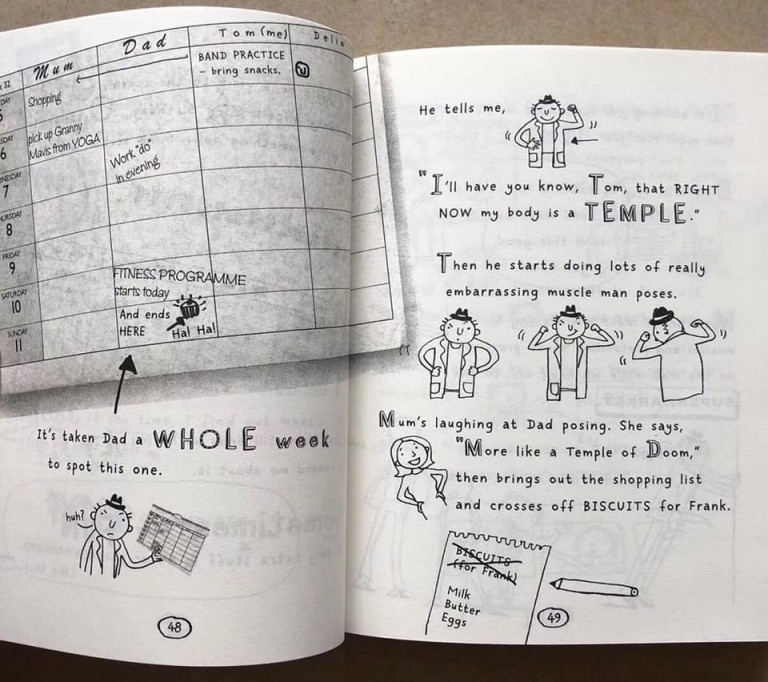 32
Mum
Dad
Tom (me)
Delia
BAND PRACTICE
– bring snacks.
DAY
5
Shopping
SDAY
6
pick up Granny
Mavis from YOGA
Work "do"
in evening
NESDAY
7
HURSDAY
8
FRIDAY
9
FITNESS PROGRAMME
starts today
SATURDAY
10
And ends
HERE
Ha! Ha!
SUNDAY
11
It's taken Dad a WHOLE week
to spot this one.
huh?
48
He tells me,
"I'll have you know, Tom, that RIGHT
NOW my body is a TEMPLE."
Then he starts doing lots of really
embarrassing muscle man poses.
Mum's laughing at Dad posing. She says,
"More like a Temple of Doom,"
then brings out the shopping list
and crosses off BISCUITS for Frank.
BISCUITS
(for Frank)
Milk
Butter
Eggs
49